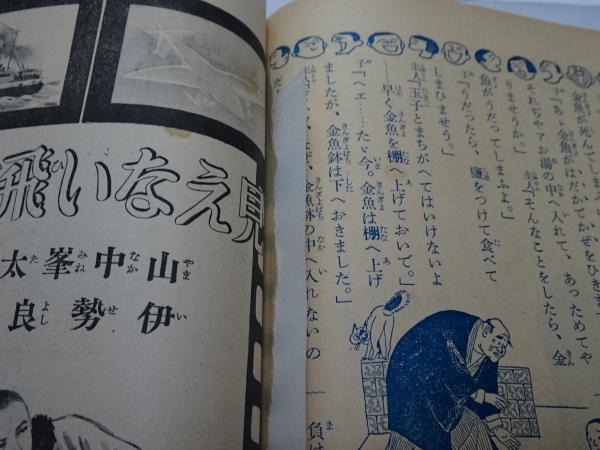 金魚が死んでしまひ
子「あゝ金魚がはだかでかぜをひきま
りませうか。」
それぢやアお湯の中へ入れて、あつためてや
主人「そんなことをしたら、金
魚がうだつてしまふよ。」
子「うだつたら、鹽をつけて食べて
しまひませう。」
主人「玉子とまちがへてはいけないよ
——早く金魚を棚へ上げておいで。」
子「ヘエ……たゞ今。金魚は棚へ上げ
ましたが、金魚鉢は下へおきました。」
金魚鉢の中へ入れないの
負け
見えない飛
山中峯太
伊勢良